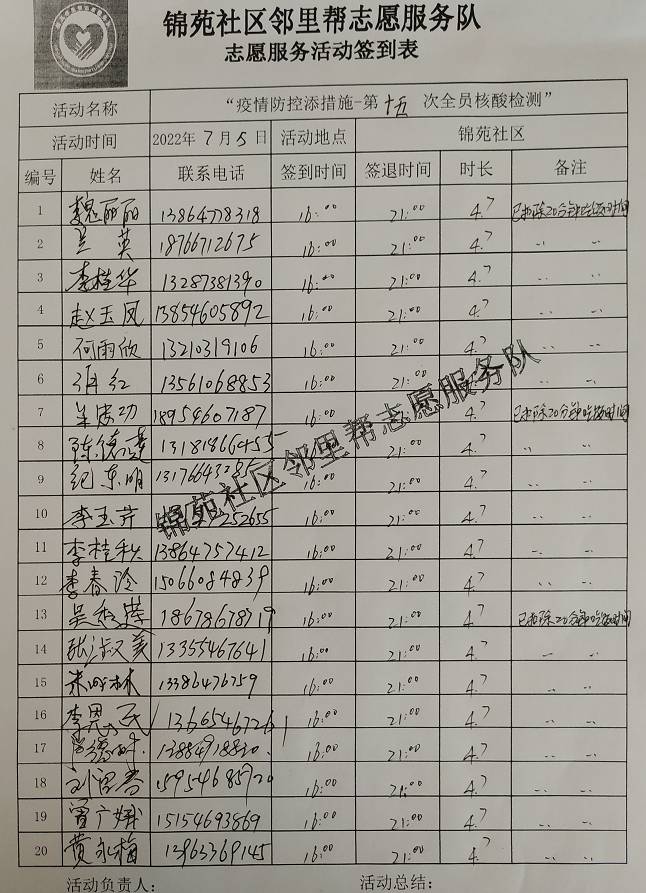 锦苑社区邻里帮志愿服务队
志愿服务活动签到表
活动名称 “疫情防控添措施-第十五次全员核酸检测”
活动时间 2022年7月5日 活动地点 锦苑社区
编号 姓名 联系电话 签到时间 签退时间 时长 备注
1 魏丽丽 13864778318 16:00 21:00 4.7 已扣除20分钟吃饭时间
2 兰英 18766712675 16:00 21:00 4.7 .. ..
3 李桂华 13287381390 16:00 21:00 4.7 .. ..
4 赵玉凤 13854605892 16:00 21:00 4.7 .. ..
5 何雨欣 13210319106 16:00 21:00 4.7 .. ..
6 张红 13561068853 16:00 21:00 4.7 .. ..
7 18954607187 16:00 21:00 4.7 已扣除20分钟吃饭时间
8 陈德 13181866455 16:00 21:00 4.7 .. ..
9 纪东明 16:00 21:00 4.7 .. ..
10 李玉芹 252655 16:00 21:00 4.7 .. ..
11 李桂秋 13864757412 16:00 21:00 4.7 .. ..
12 李春玲 15066084839 16:00 21:00 4.7 .. ..
13 吴 18678678719 16:00 21:00 4.7 已扣除20分钟吃饭时间
14 张淑美 13355467641 16:00 21:00 4.7 .. ..
15 13386476759 16:00 21:00 4.7 .. ..
16 李恩民 13665467261 16:00 21:00 4.7 .. ..
17 13884918830 16:00 21:00 4.7 .. ..
18 刘 15954685720 16:00 21:00 4.7 .. ..
19 曾广娥 15154693869 16:00 21:00 4.7 .. ..
20 黄永梅 13963369145 16:00 21:00 4.7 .. ..
活动负责人: 活动总结:
锦苑社区邻里帮志愿服务队